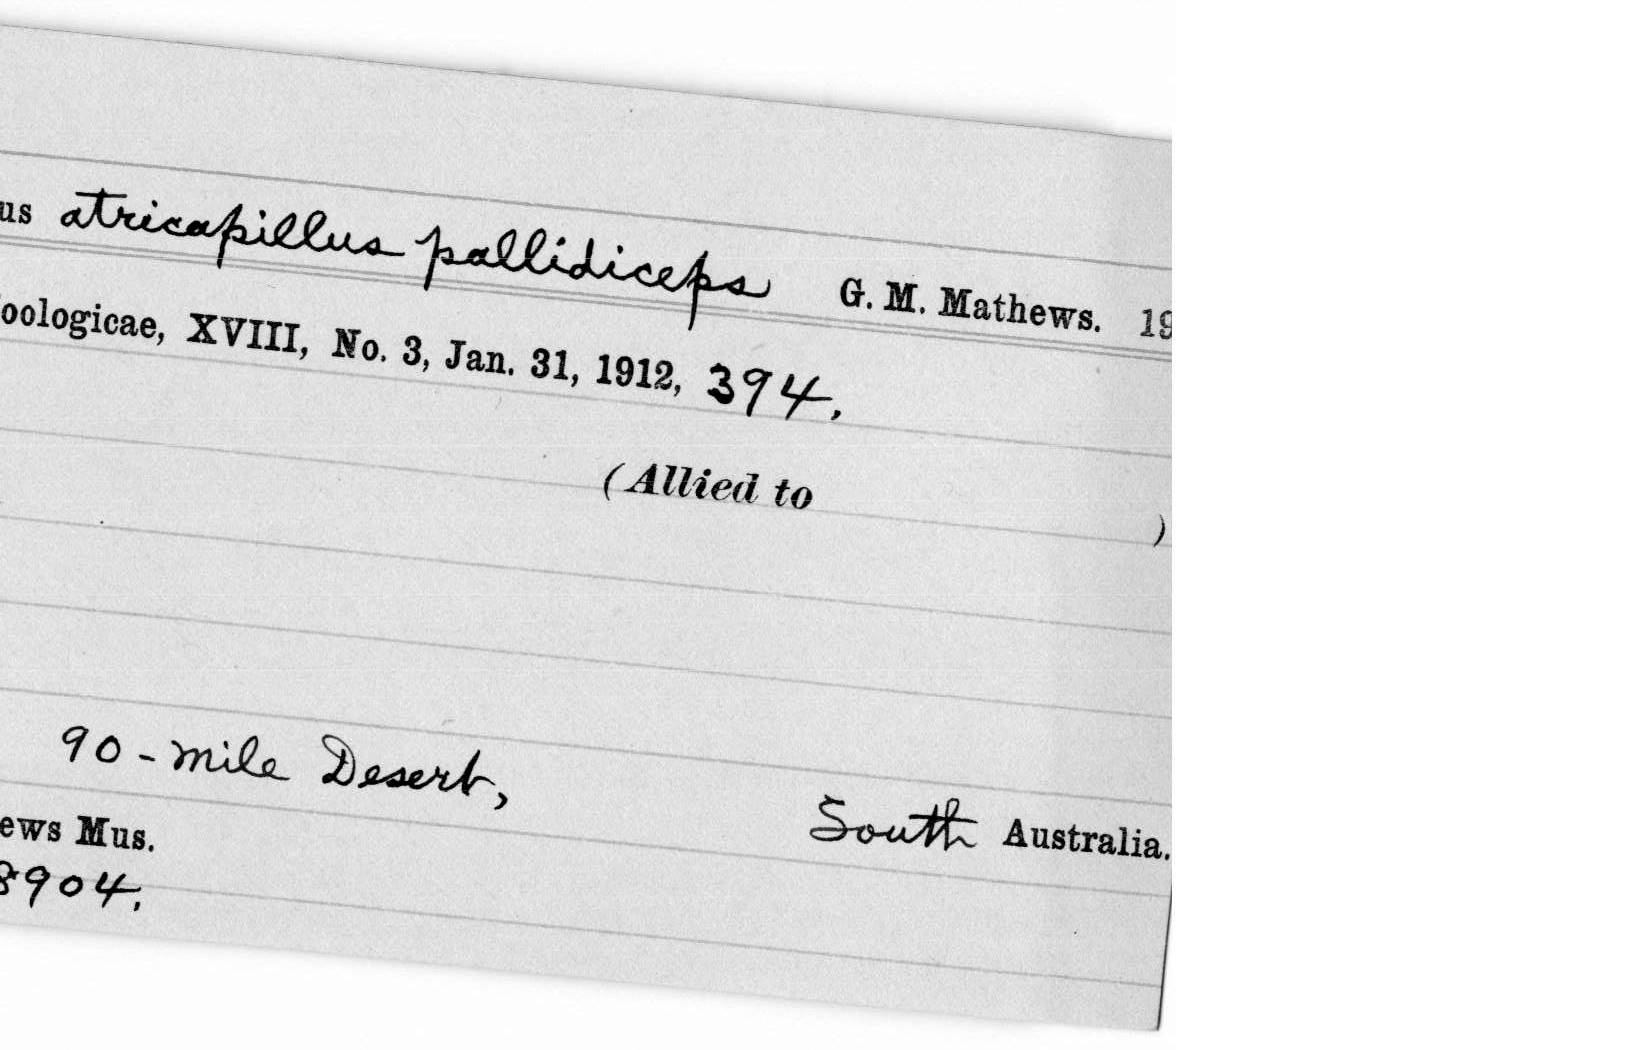 us atricapillus pallidiceps G. M. Mathews. 19
oologicae, XVIII, No. 3, Jan. 31, 1912, 394.
(Allied to )
90-mile Desert, South Australia.
ews Mus.
8904.